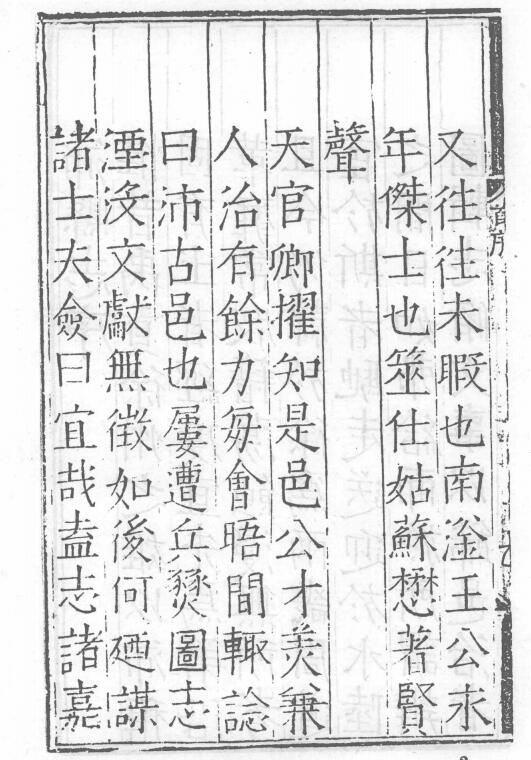 又徃徃未暇也南滏王公永
年傑士也筮仕姑蘇懋著賢
聲
天官卿擢知是邑公才羙兼
人治有餘力每會晤間輙諗
曰沛古邑也屢遭兵燹圖志
湮沒文獻無徵如後何廼謀
諸士夫僉曰宜哉盍志諸嘉